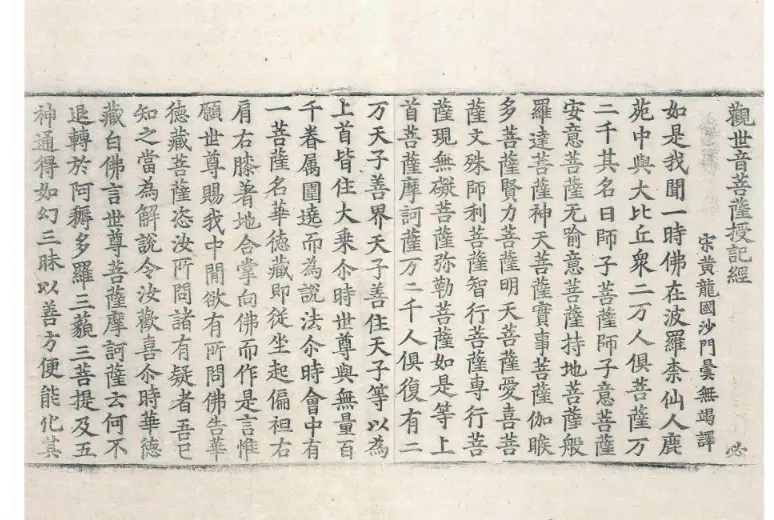 觀世音菩薩授記經
宋黃龍國沙門曇無竭譯
如是我聞一時佛在波羅柰仙人鹿
苑中與大比丘衆二万人俱菩薩万
二千其名曰師子菩薩師子意菩薩
安意菩薩无喻意菩薩持地菩薩般
羅達菩薩神天菩薩實事菩薩伽睺
多菩薩賢力菩薩明天菩薩愛喜菩
薩文殊師利菩薩智行菩薩專行菩
薩現無礙菩薩弥勒菩薩如是等上
首菩薩摩訶薩万二千人俱復有二
万天子善界天子善住天子等以為
上首皆住大乗尒時世尊與無量百
千眷属圍遶而為說法尒時會中有
一菩薩名華德藏即從坐起偏袒右
肩右膝著地合掌向佛而作是言惟
願世尊賜我中閒欲有所問佛告華
德藏菩薩恣汝所問諸有疑者吾已
知之當為解說令汝歡喜尒時華德
藏白佛言世尊菩薩摩訶薩云何不
退轉於阿耨多羅三藐三菩提及五
神通得如幻三昧以善方便能化其